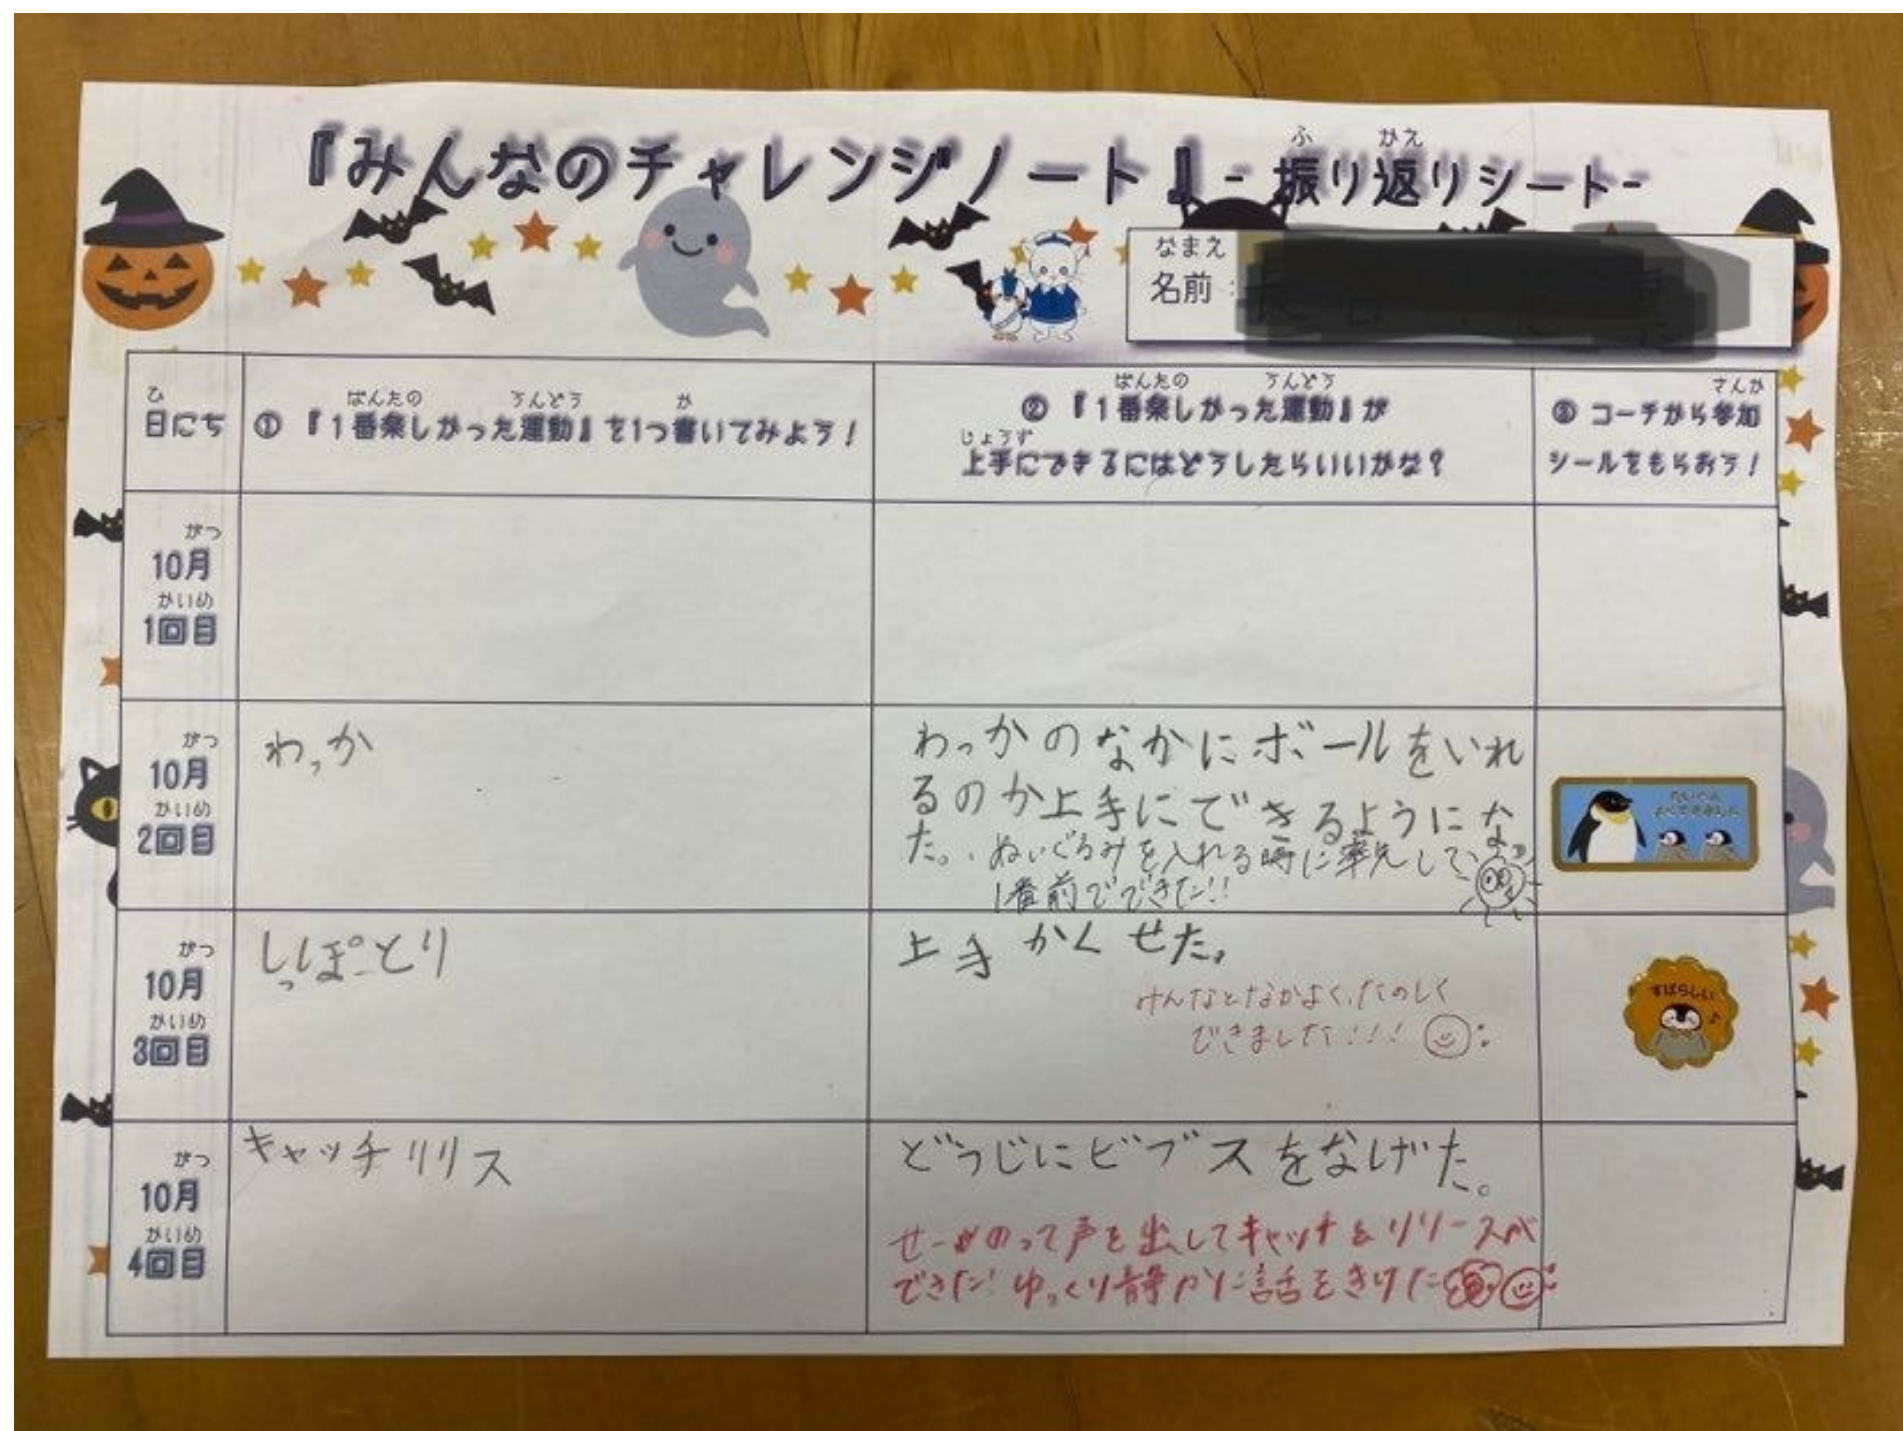 『みんなのチャレンジノート』-振り返りシート-
ふ かえ
なまえ
名前：
ひ
日にち
ばんたの うんどう か
①『1番楽しかった運動』を1つ書いてみよう！
ばんたの うんどう
②『1番楽しかった運動』が
じょうず
上手にできるにはどうしたらいいかな？
さんか
③コーチから参加
シールをもらおう！
がつ
10月
かいめ
1回目
がつ
10月
かいめ
2回目
わっか
わっかのなかにボールをいれ
るのか上手にできるようにな
た。
ぬいぐるみを入れる時に率先して
1番前でできた!!
たいへん
よくできました
がつ
10月
かいめ
3回目
しっぽとり
上手かくせた。
みんなとなかよく、たのしく
できました!!!
すばらしい♪
がつ
10月
かいめ
4回目
キャッチリリス
どうじにビブスをなげた。
せーのって声を出してキャッチ&リリースが
できた! ゆっくり静かに話をきけた